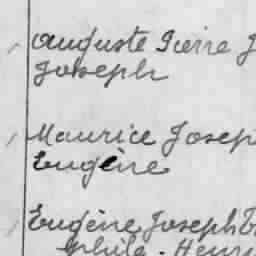 Auguste Pierre J
Joseph
Maurice Josep
Eugène
Eugène Joseph
phile - Henri